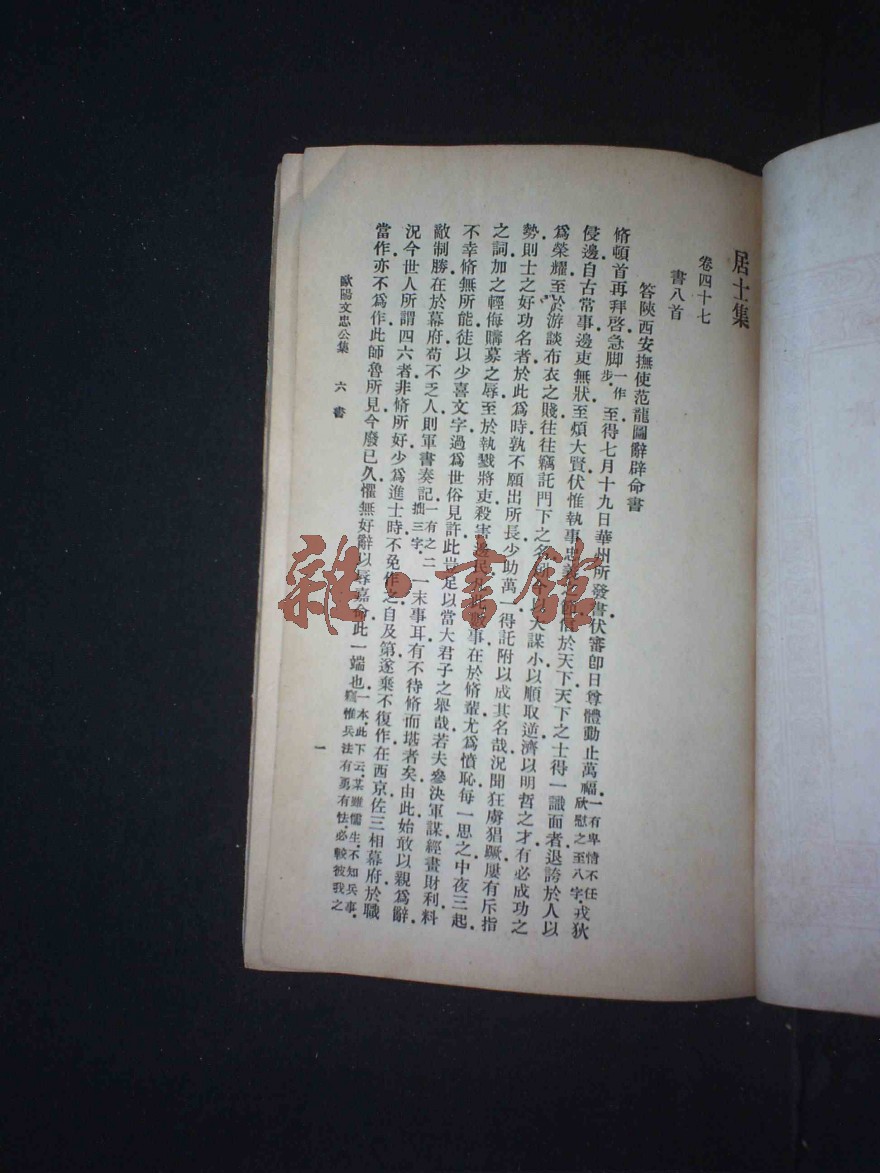 居士集
卷四十七
書八首
答陝西安撫使范龍圖辭辟命書
脩頓首再拜啓急脚一作步至得七月十九日華州所發書伏審卽日尊體動止萬福一有卑情不任欣慰之至八字戎狄
侵邊自古常事邊吏無狀至煩大賢伏惟執事忠義之節信於天下天下之士得一識面者退誇於人以
爲榮耀至於游談布衣之賤往往竊託門下之名矧今以大謀小以順取逆濟以明哲之才有必成功之
勢則士之好功名者於此爲時孰不願出所長少助萬一得託附以成其名哉況聞狂虜猖蹶屢有斥指
之詞加之輕侮購募之辱至於執戮將吏殺害邊民凡此數事在於脩輩尤爲憤恥每一思之中夜三起
不幸脩無所能徒以少喜文字過爲世俗見許此豈足以當大君子之舉哉若夫參決軍謀經畫財利料
敵制勝在於幕府苟不乏人則軍書奏記一有之二拙三字一末事耳有不待脩而堪者矣由此始敢以親爲辭
況今世人所謂四六者非脩所好少爲進士時不免作之自及第遂棄不復作在西京佐三相幕府於職
當作亦不爲作此師魯所見今廢已久懼無好辭以辱嘉命此一端也一本此下云某雖儒生不知兵事竊惟兵法有勇有怯必較彼我之
歐陽文忠公集 六 書 一
雜·書館